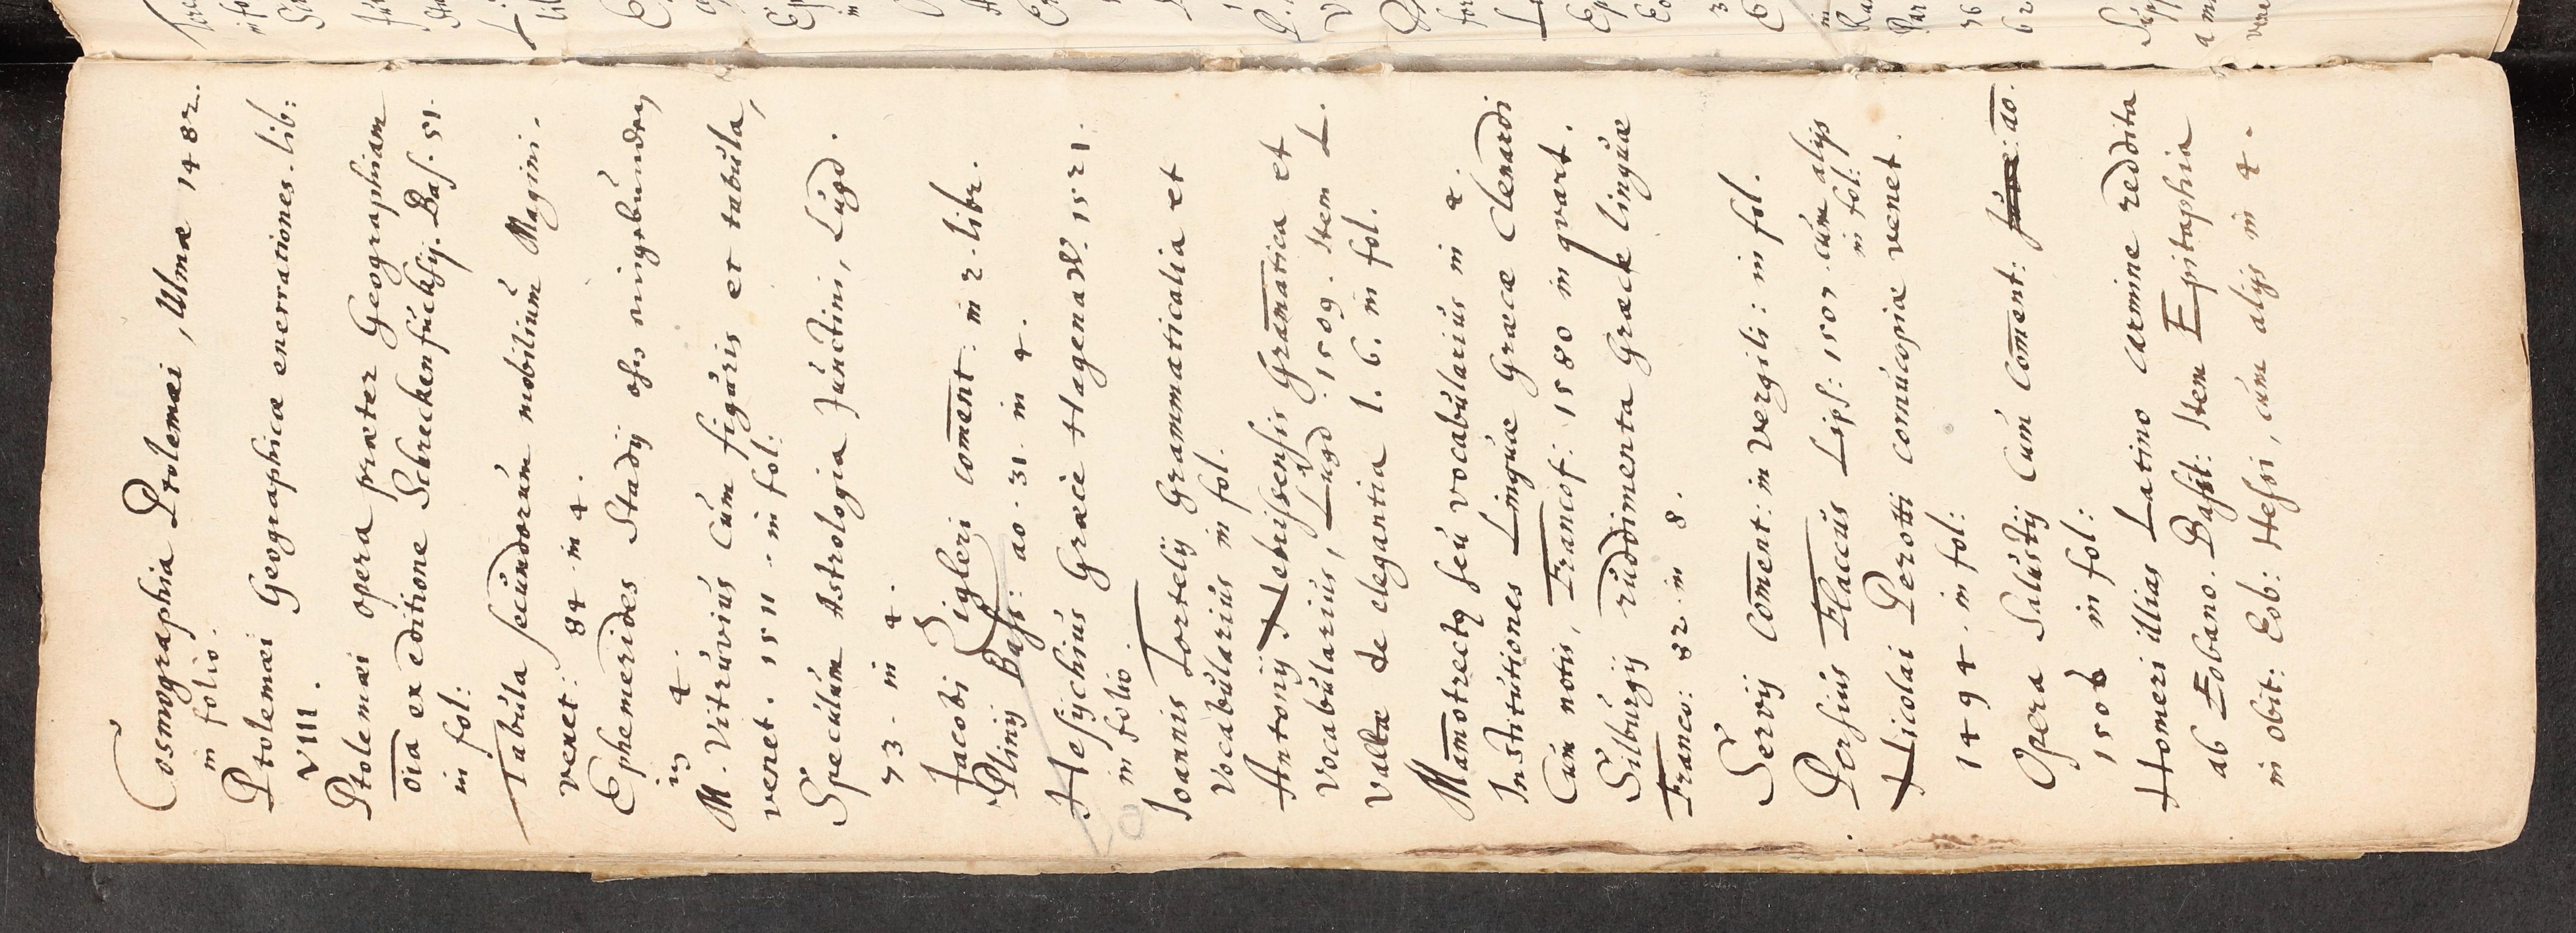 Cosmographia Ptolemæi, Ulmæ 1482.
in folio.
Ptolemæi Geographicæ enerrationes. lib:
VIII.
Ptolemæi opera præter Geographiam
oīa ex editione Schreckenfuchsij. Bas. 51.
in fol:
Tabula secundorum mobilium Magini.
venet: 84. in 4.
Ephemerides Stadij ohn eingebunden
in 4.
M. Vitruvius Cum figuris et tabula,
venet. 1511. in fol:
Speculum Astrologia Junctini, Lugd.
73. in 4.
Jacobi Zigleri com̄ent: in 2. libr.
Plinij Basi: ao. 31. in 4.
Hesychius Græce Hagenaw. 1521.
in folio.
Ioannis Tortelij Grammaticalia et
Vocabularius in fol.
Antonij Nebrissensis Gram̄atica et
Vocabularius, Lugd. 1509. Item L.
Vallæ de elegantia l. 6. in fol.
Mam̄otrectq seu vocabularius in 4.
Institutiones Linguæ Græcæ Clenardi
Cum notis, Francof: 1580 in quart.
Silburgij ruddimenta Græck linguæ
Franco: 82. in 8.
Servij Com̄ent: in Vergili: in fol.
Persius Flaccus Lips: 1507. cum alijs
in fol:
Nicolai Perotti cornucopiæ venet.
1494. in fol:
Opera Salustij Cum Com̄ent: ao.
1506 in fol:
Homeri illias Latino carmine reddita
ab Eobano. Basil: Item Epitaphia
in obit: Eob: Hessi, cum alijs in 4.